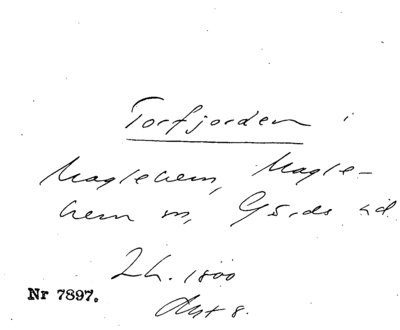 Torfjorden i
Maglehem, Magle-
hem sn, Gärds hd
2 h. 1800
Nr 7897.
Akt 8.